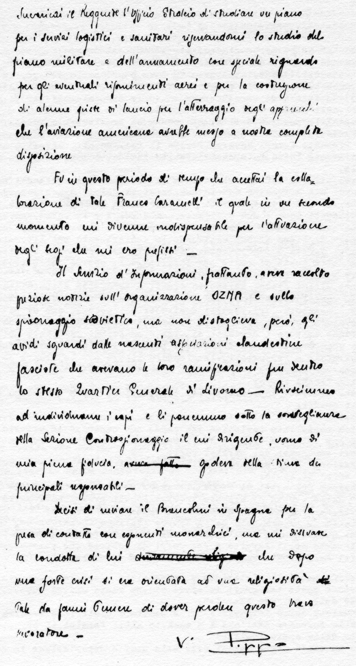 Incaricai il Reggente l'Ufficio Stralcio di studiare un piano
per i servizi logistici e sanitari riservandomi lo studio del
piano militare e dell'armamento con speciale riguardo
per gli eventuali rifornimenti aerei e per la costruzione
di alcune piste di lancio per l'atterraggio degli apparecchi
che l'aviazione americana avrebbe messo a nostra completa
disposizione
Fu in questo periodo di tempo che accettai la colla-
borazione di tale Franco Caramelli il quale in un secondo
momento mi divenne indispensabile per l'attuazione
degli scopi che mi ero prefissi —
Il Servizio d'Informazioni, frattanto, aveva raccolto
preziose notizie sull'organizzazione OZNA e sullo
spionaggio sovietico, ma non distoglieva, però, gli
avidi sguardi dalle nascenti associazioni clandestine
fasciste che avevano le loro ramificazioni fin dentro
lo stesso Quartier Generale di Livorno — Riuscimmo
ad individuarne i capi e li ponemmo sotto la sorveglianza
della Sezione Controspionaggio il cui dirigente, uomo di
mia piena fiducia, godeva della stima dei
principali responsabili —
Decisi di inviare il Brancolini in Spagna per la
presa di contatto con esponenti monarchici, ma mi dissuase
la condotta di lui che dopo
una forte crisi si era orientata ad una religiosità
tale da farmi temere di dover perdere questo bravo
V. Pippo